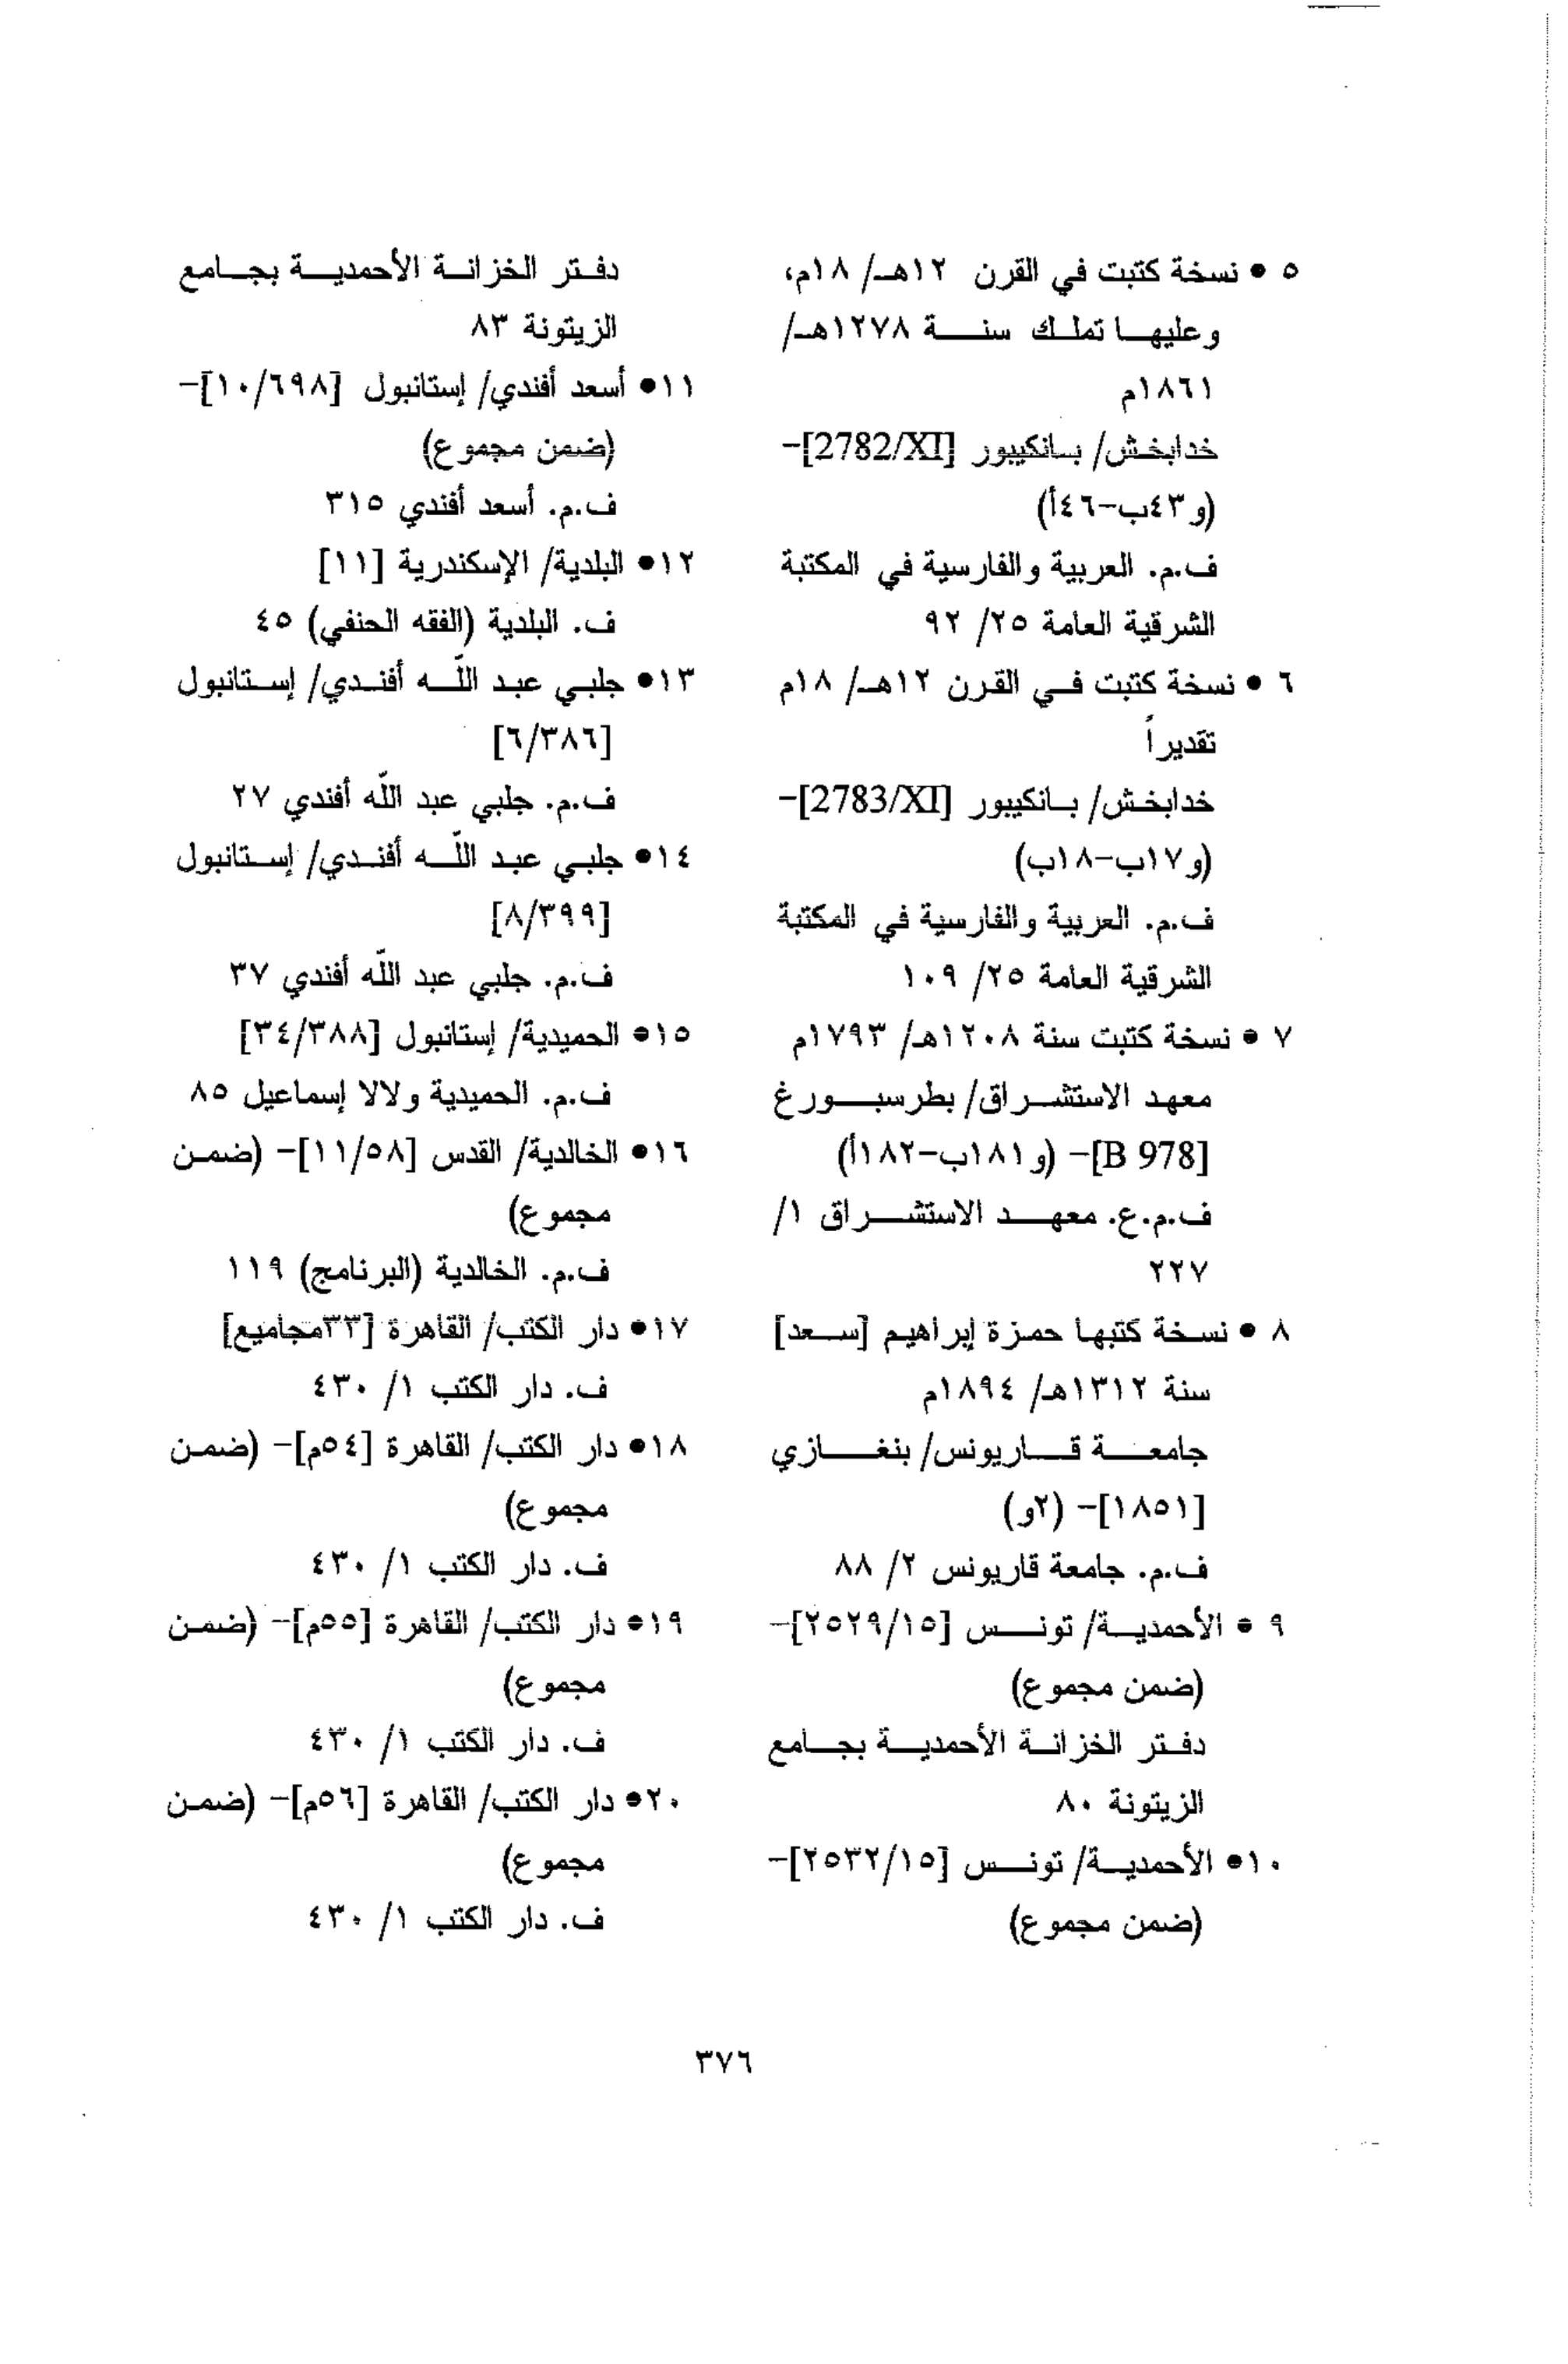 ٥ • نسخة كتبت في القرن ١٢هـ/ ١٨م،
وعليها تملك سنة ١٢٧٨هـ/
١٨٦١م
خدابخش/ بانكيبور [2782/XI]-
(و٤٣ب-٤٦أ)
ف.م. العربية والفارسية في المكتبة
الشرقية العامة ٢٥/ ٩٢
٦ • نسخة كتبت في القرن ١٢هـ/ ١٨م
تقديراً
خدابخش/ بانكيبور [2783/XI]-
(و١٧ب-١٨ب)
ف.م. العربية والفارسية في المكتبة
الشرقية العامة ٢٥/ ١٠٩
٧ • نسخة كتبت سنة ١٢٠٨هـ/ ١٧٩٣م
معهد الاستشراق/ بطرسبورغ
[B 978]- (و١٨١ب-١٨٢أ)
ف.م.ع. معهد الاستشراق ١/
٢٢٧
٨ • نسخة كتبها حمزة إبراهيم [سعد]
سنة ١٣١٢هـ/ ١٨٩٤م
جامعة قاريونس/ بنغازي
[١٨٥١]- (٢و)
ف.م. جامعة قاريونس ٢/ ٨٨
٩ • الأحمدية/ تونس [٢٥٢٩/١٥]-
(ضمن مجموع)
دفتر الخزانة الأحمدية بجامع
الزيتونة ٨٠
١٠• الأحمدية/ تونس [٢٥٣٢/١٥]-
(ضمن مجموع)
دفتر الخزانة الأحمدية بجامع
الزيتونة ٨٣
١١• أسعد أفندي/ إستانبول [١٠/٦٩٨]-
(ضمن مجموع)
ف.م. أسعد أفندي ٣١٥
١٢• البلدية/ الإسكندرية [١١]
ف. البلدية (الفقه الحنفي) ٤٥
١٣• جلبي عبد اللّه أفندي/ إستانبول
[٦/٣٨٦]
ف.م. جلبي عبد اللّه أفندي ٢٧
١٤• جلبي عبد اللّه أفندي/ إستانبول
[٨/٣٩٩]
ف.م. جلبي عبد اللّه أفندي ٣٧
١٥• الحميدية/ إستانبول [٣٤/٣٨٨]
ف.م. الحميدية ولالا إسماعيل ٨٥
١٦• الخالدية/ القدس [١١/٥٨]- (ضمن
مجموع)
ف.م. الخالدية (البرنامج) ١١٩
١٧• دار الكتب/ القاهرة [٣٣مجاميع]
ف. دار الكتب ١/ ٤٣٠
١٨• دار الكتب/ القاهرة [٥٤م]- (ضمن
مجموع)
ف. دار الكتب ١/ ٤٣٠
١٩• دار الكتب/ القاهرة [٥٥م]- (ضمن
مجموع)
ف. دار الكتب ١/ ٤٣٠
٢٠• دار الكتب/ القاهرة [٥٦م]- (ضمن
مجموع)
ف. دار الكتب ١/ ٤٣٠
٣٧٦